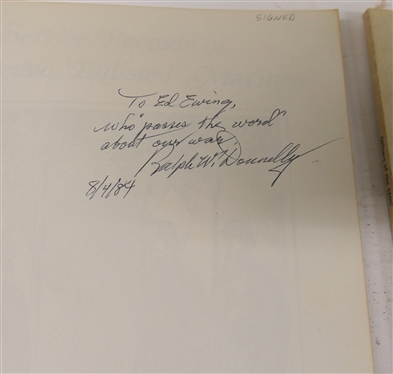 SIGNED
To Ed Ewing,
who "passes the word"
about our war.
Ralph W. Donnelly
8/4/84